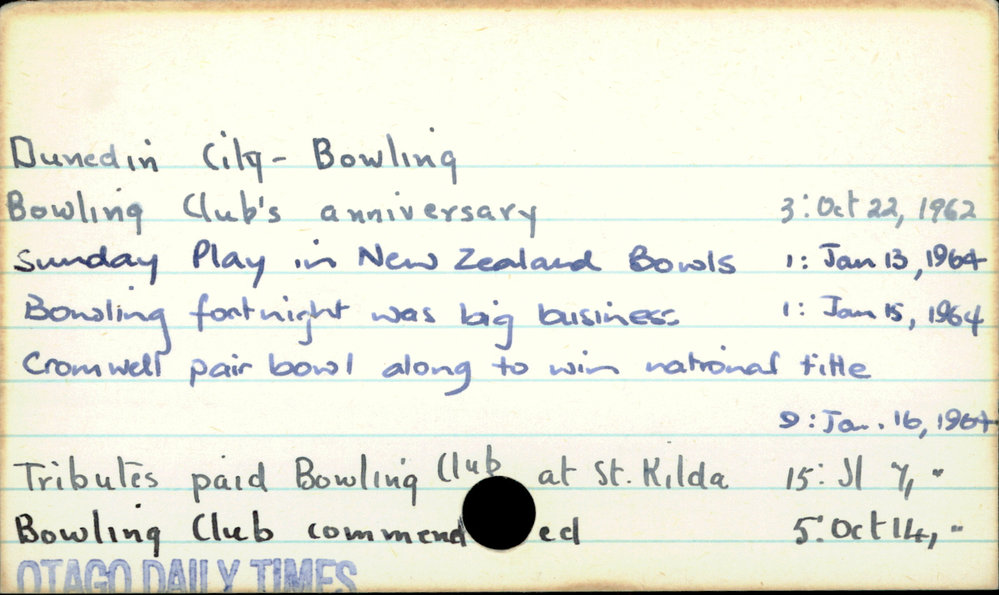 Dunedin City - Bowling
Bowling Club's anniversary 3: Oct 22, 1962
Sunday Play in New Zealand Bowls 1: Jan 13, 1964
Bowling fortnight was big business 1: Jan 15, 1964
Cromwell pair bowl along to win national title
9: Jan. 16, 1964
Tributes paid Bowling Club at St. Kilda 15: Jl 7, "
Bowling Club commended 5: Oct 14, "
OTAGO DAILY TIMES